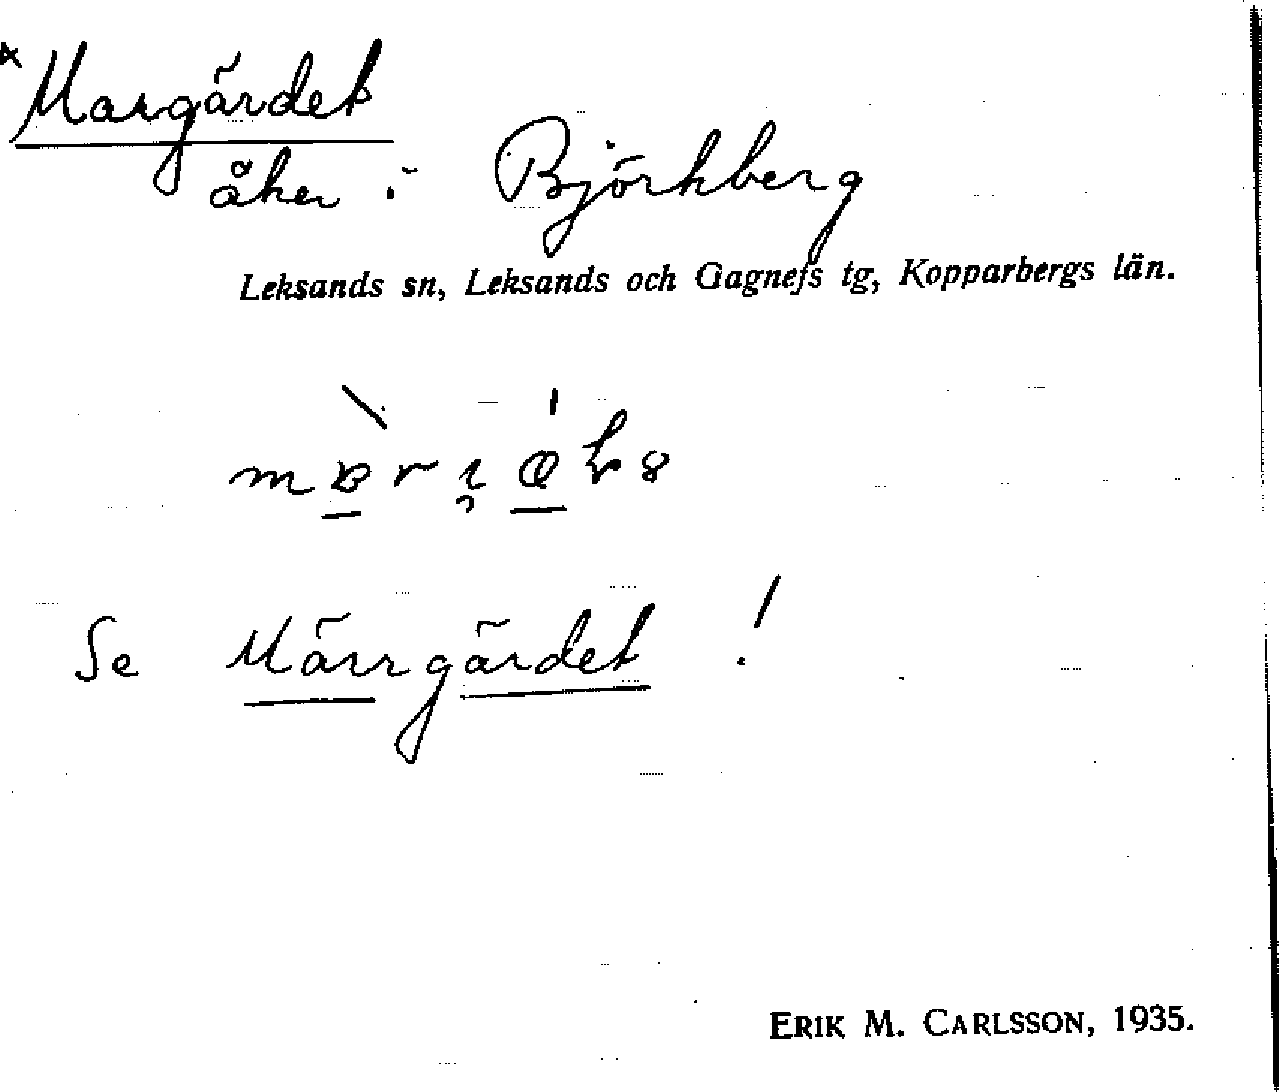 * Margärdet
åker i Björkberg
Leksands sn, Leksands och Gagnefs tg, Kopparbergs län.
Se Märrgärdet !
ERIK M. CARLSSON, 1935.